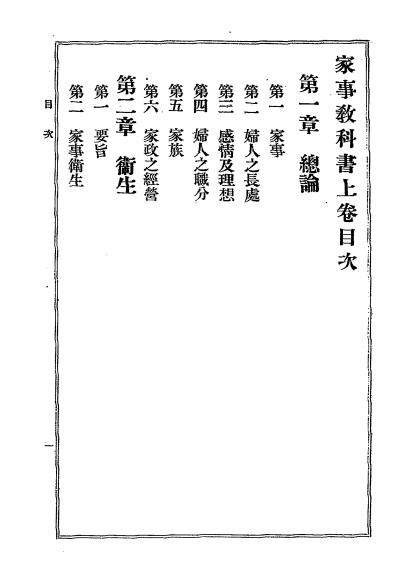 家事教科書上卷目次
第一章 總論
第一 家事
第二 婦人之長處
第三 感情及理想
第四 婦人之職分
第五 家族
第六 家政之經營
第二章 衞生
第一 要旨
第二 家事衞生
目次
一